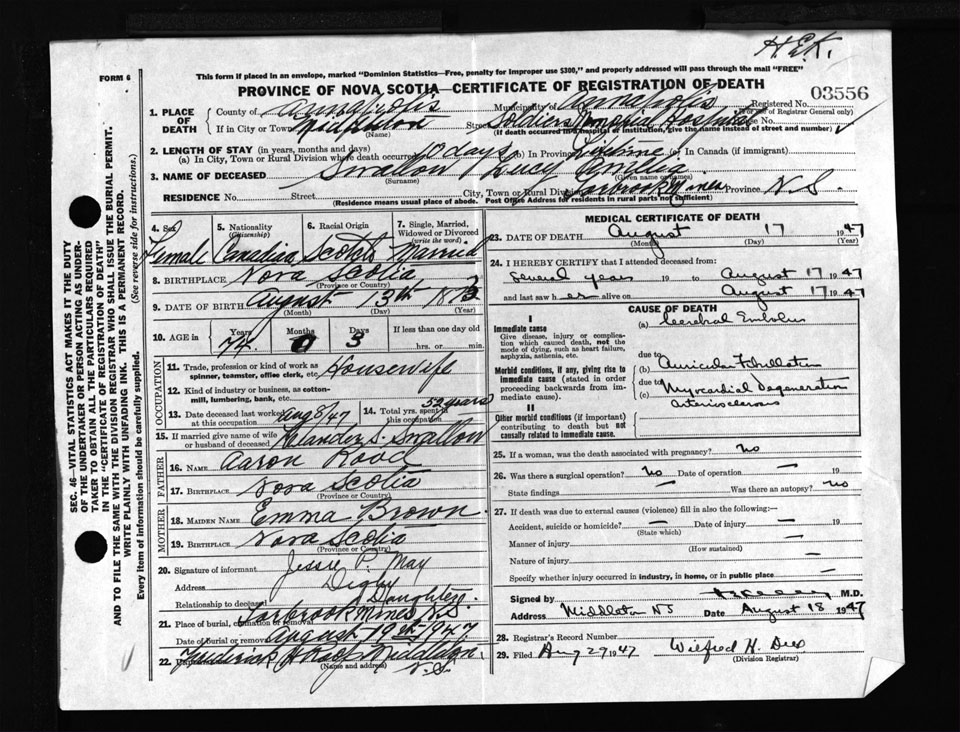 H.E.K.
FORM 6
This form if placed in an envelope, marked "Dominion Statistics—Free, penalty for improper use $300," and properly addressed will pass through the mail "FREE"
PROVINCE OF NOVA SCOTIA—CERTIFICATE OF REGISTRATION OF DEATH
03556
1. PLACE OF DEATH
County of Annapolis Municipality of Annapolis Registered No.
(For use of Registrar General only)
If in City or Town Middleton (Name) Street Soldiers Memorial Hospital House No.
(If death occurred in a hospital or institution, give the name instead of street and number)
2. LENGTH OF STAY (in years, months and days)
(a) In City, Town or Rural Division where death occurred 10 days (b) In Province Lifetime (c) In Canada (if immigrant)
3. NAME OF DECEASED Swallow Lucy
(Surname) (Given name or names)
RESIDENCE No. Street City, Town or Rural Division Torbrook Mines Province N.S.
(Residence means usual place of abode. Post Office Address for residents in rural parts not sufficient)
SEC. 46—VITAL STATISTICS ACT MAKES IT THE DUTY
OF THE UNDERTAKER OR PERSON ACTING AS UNDERTAKER TO OBTAIN ALL THE PARTICULARS REQUIRED
IN THE "CERTIFICATE OF REGISTRATION OF DEATH"
AND TO FILE THE SAME WITH THE DIVISION REGISTRAR WHO SHALL ISSUE THE BURIAL PERMIT.
WRITE PLAINLY WITH UNFADING INK. THIS IS A PERMANENT RECORD.
Every item of information should be carefully supplied. (See reverse side for instructions.)
4. Sex
Female
5. Nationality (Citizenship)
Canadian
6. Racial Origin
Scotch
7. Single, Married, Widowed or Divorced (write the word)
Married
8. BIRTHPLACE Nova Scotia
(Province or Country)
9. DATE OF BIRTH August 13th 1873
(Month) (Day) (Year)
10. AGE in Years Months Days If less than one day old
74 0 3 hrs. or min.
OCCUPATION
11. Trade, profession or kind of work as spinner, teamster, office clerk, etc. Housewife
12. Kind of industry or business, as cotton-mill, lumbering, bank, etc.
13. Date deceased last worked at this occupation Aug 8/47
14. Total yrs. spent in this occupation 52 years
15. If married give name of wife or husband of deceased Leander S. Swallow
FATHER
16. NAME Aaron Rood
17. BIRTHPLACE Nova Scotia
(Province or Country)
MOTHER
18. MAIDEN NAME Emma Brown
19. BIRTHPLACE Nova Scotia
(Province or Country)
20. Signature of informant Jessie P. May
Address Digby
Relationship to deceased Daughter
21. Place of burial, cremation or removal Torbrook Mines N.S.
Date of burial or removal August 19th 1947
22. Undertaker Frederick Middleton
(Name and address) N.S.
MEDICAL CERTIFICATE OF DEATH
23. DATE OF DEATH August 17 1947
(Month) (Day) (Year)
24. I HEREBY CERTIFY that I attended deceased from:
Several years 19 to August 17 1947
and last saw her alive on August 17 1947
CAUSE OF DEATH
I
Immediate cause
Give disease, injury or complication which caused death, not the mode of dying, such as heart failure, asphyxia, asthenia, etc.
(a) Cerebral Embolus
due to
Morbid conditions, if any, giving rise to immediate cause (stated in order proceeding backwards from immediate cause).
(b) Auricular Fibrillation
due to
(c) Myocardial Degeneration
Arteriosclerosis
II
Other morbid conditions (if important) contributing to death but not causally related to immediate cause.
25. If a woman, was the death associated with pregnancy? No
26. Was there a surgical operation? No Date of operation — 19
State findings — Was there an autopsy? no
27. If death was due to external causes (violence) fill in also the following:—
Accident, suicide or homicide? — Date of injury — 19
(State which)
Manner of injury —
(How sustained)
Nature of injury —
Specify whether injury occurred in industry, in home, or in public place —
Signed by M.D.
Address Middleton NS Date August 18 1947
28. Registrar's Record Number
29. Filed Aug 29 1947 Wilfred H.
(Division Registrar)